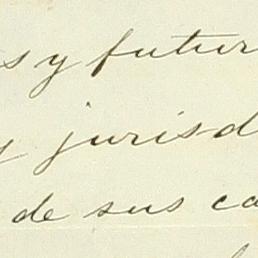 s y futur
y jurisd
de sus ca